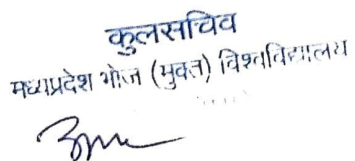 कुलसचिव
मध्यप्रदेश भोज (मुक्त) विश्वविद्यालय